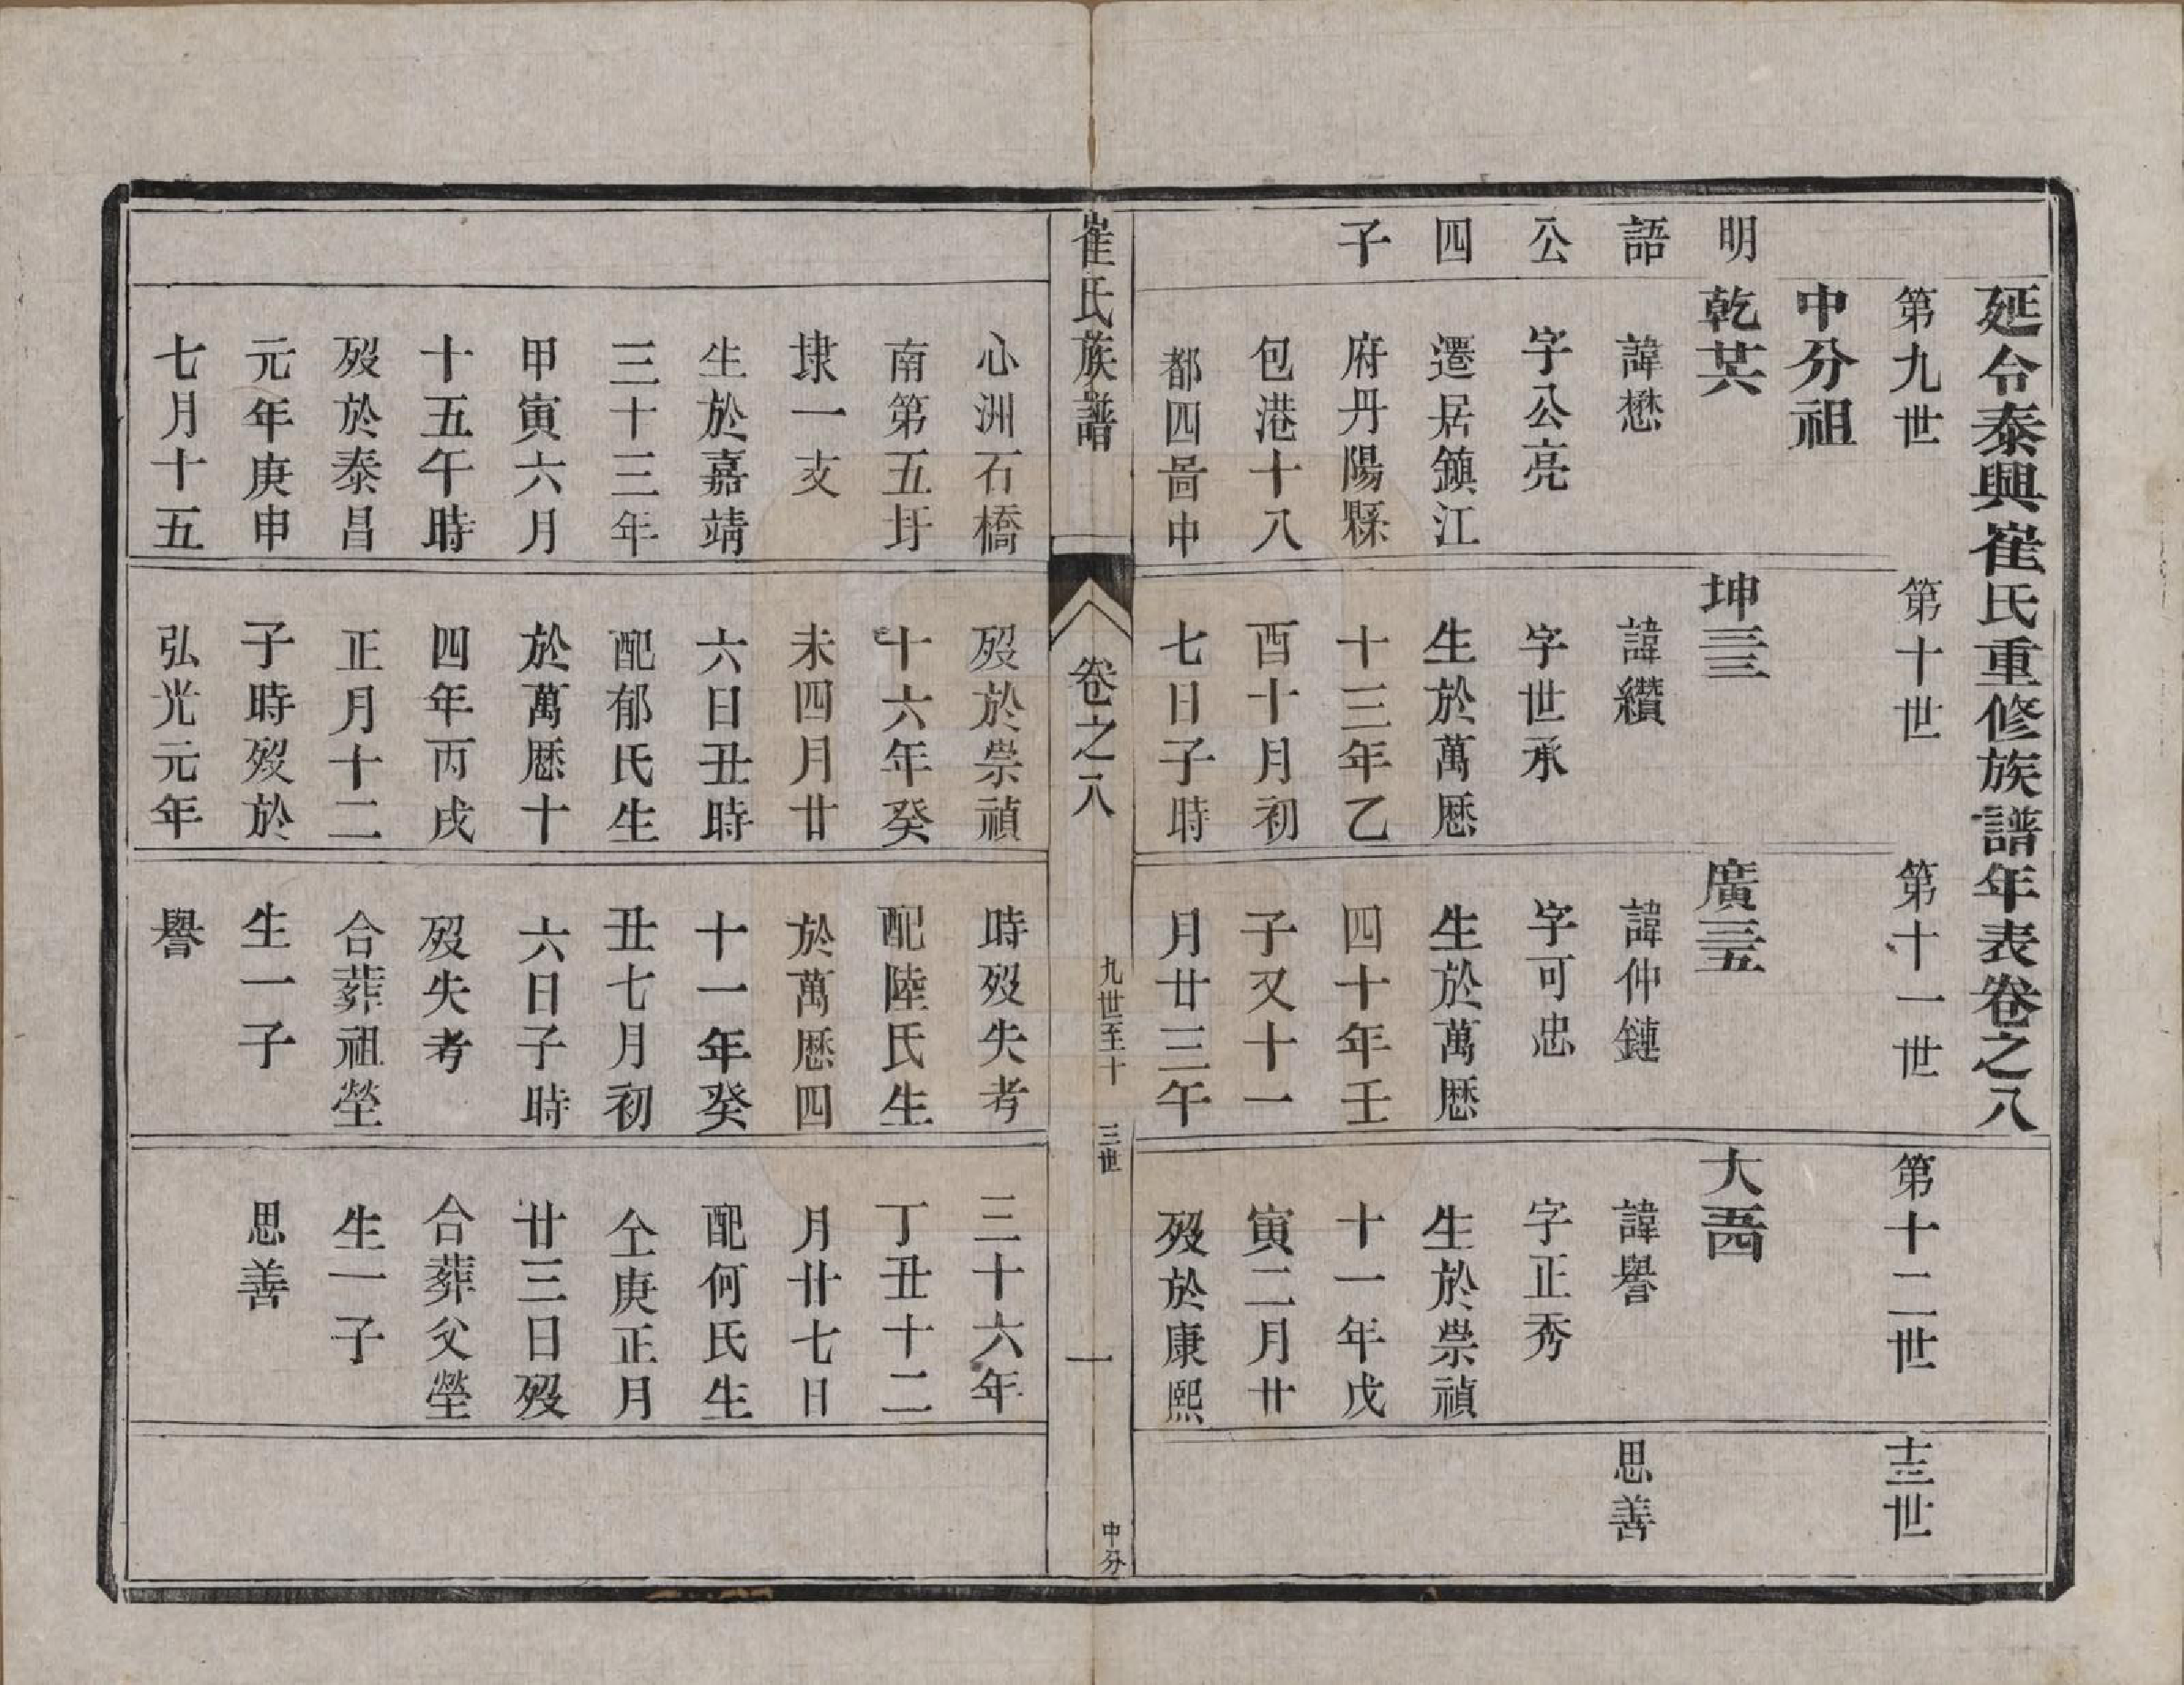 延令泰興崔氏重修族譜年表卷之八
第九世
第十世
第十一世
第十二世
十三世
中分祖
明語公四子
乾共
諱懋
字公亮
遷居鎮江
府丹陽縣
包港十八
都四啚中
心洲石橋
南第五圩
埭一支
生於嘉靖
三十三年
甲寅六月
十五午時
歿於泰昌
元年庚申
七月十五
坤三三
諱纘
字世承
生於萬厯
十三年乙
酉十月初
七日子時
歿於崇禎
十六年癸
未四月廿
六日丑時
配郁氏生
於萬厯十
四年丙戌
正月十二
子時歿於
弘光元年
廣三五
諱仲鏈
字可忠
生於萬厯
四十年壬
子又十一
月廿三午
時歿失考
配陸氏生
於萬厯四
十一年癸
丑七月初
六日子時
歿失考
合葬祖塋
生一子
譽
大五四
諱譽
字正秀
生於崇禎
十一年戊
寅二月廿
歿於康熙
三十六年
丁丑十二
月廿七日
配何氏生
仝庚正月
廿三日歿
合葬父塋
生一子
思善
思善
崔氏族譜
卷之八
九世至十三世
一
中分